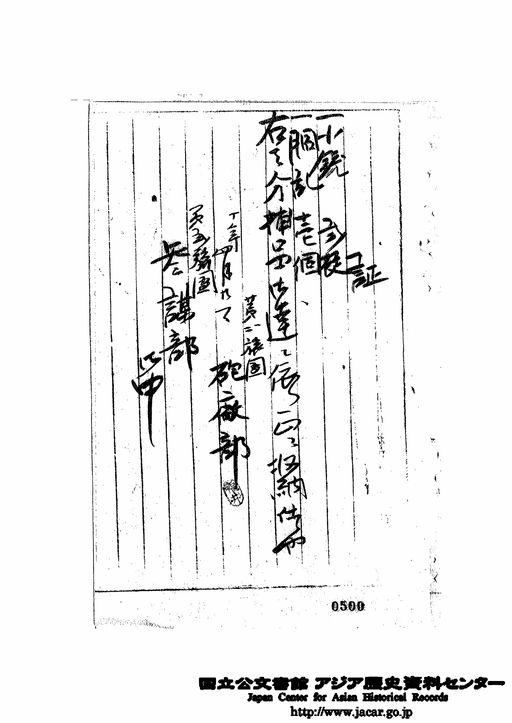 証
一小銃 弐挺
一胴乱 壱個
右之分 御達ニ依り正ニ収納仕候也
第二旅団
砲廠部
十年四月九日
旅団
参謀部
御中
0500
国立公文書館 アジア歴史資料センター
Japan Center for Asian Historical Records
http://www.jacar.go.jp